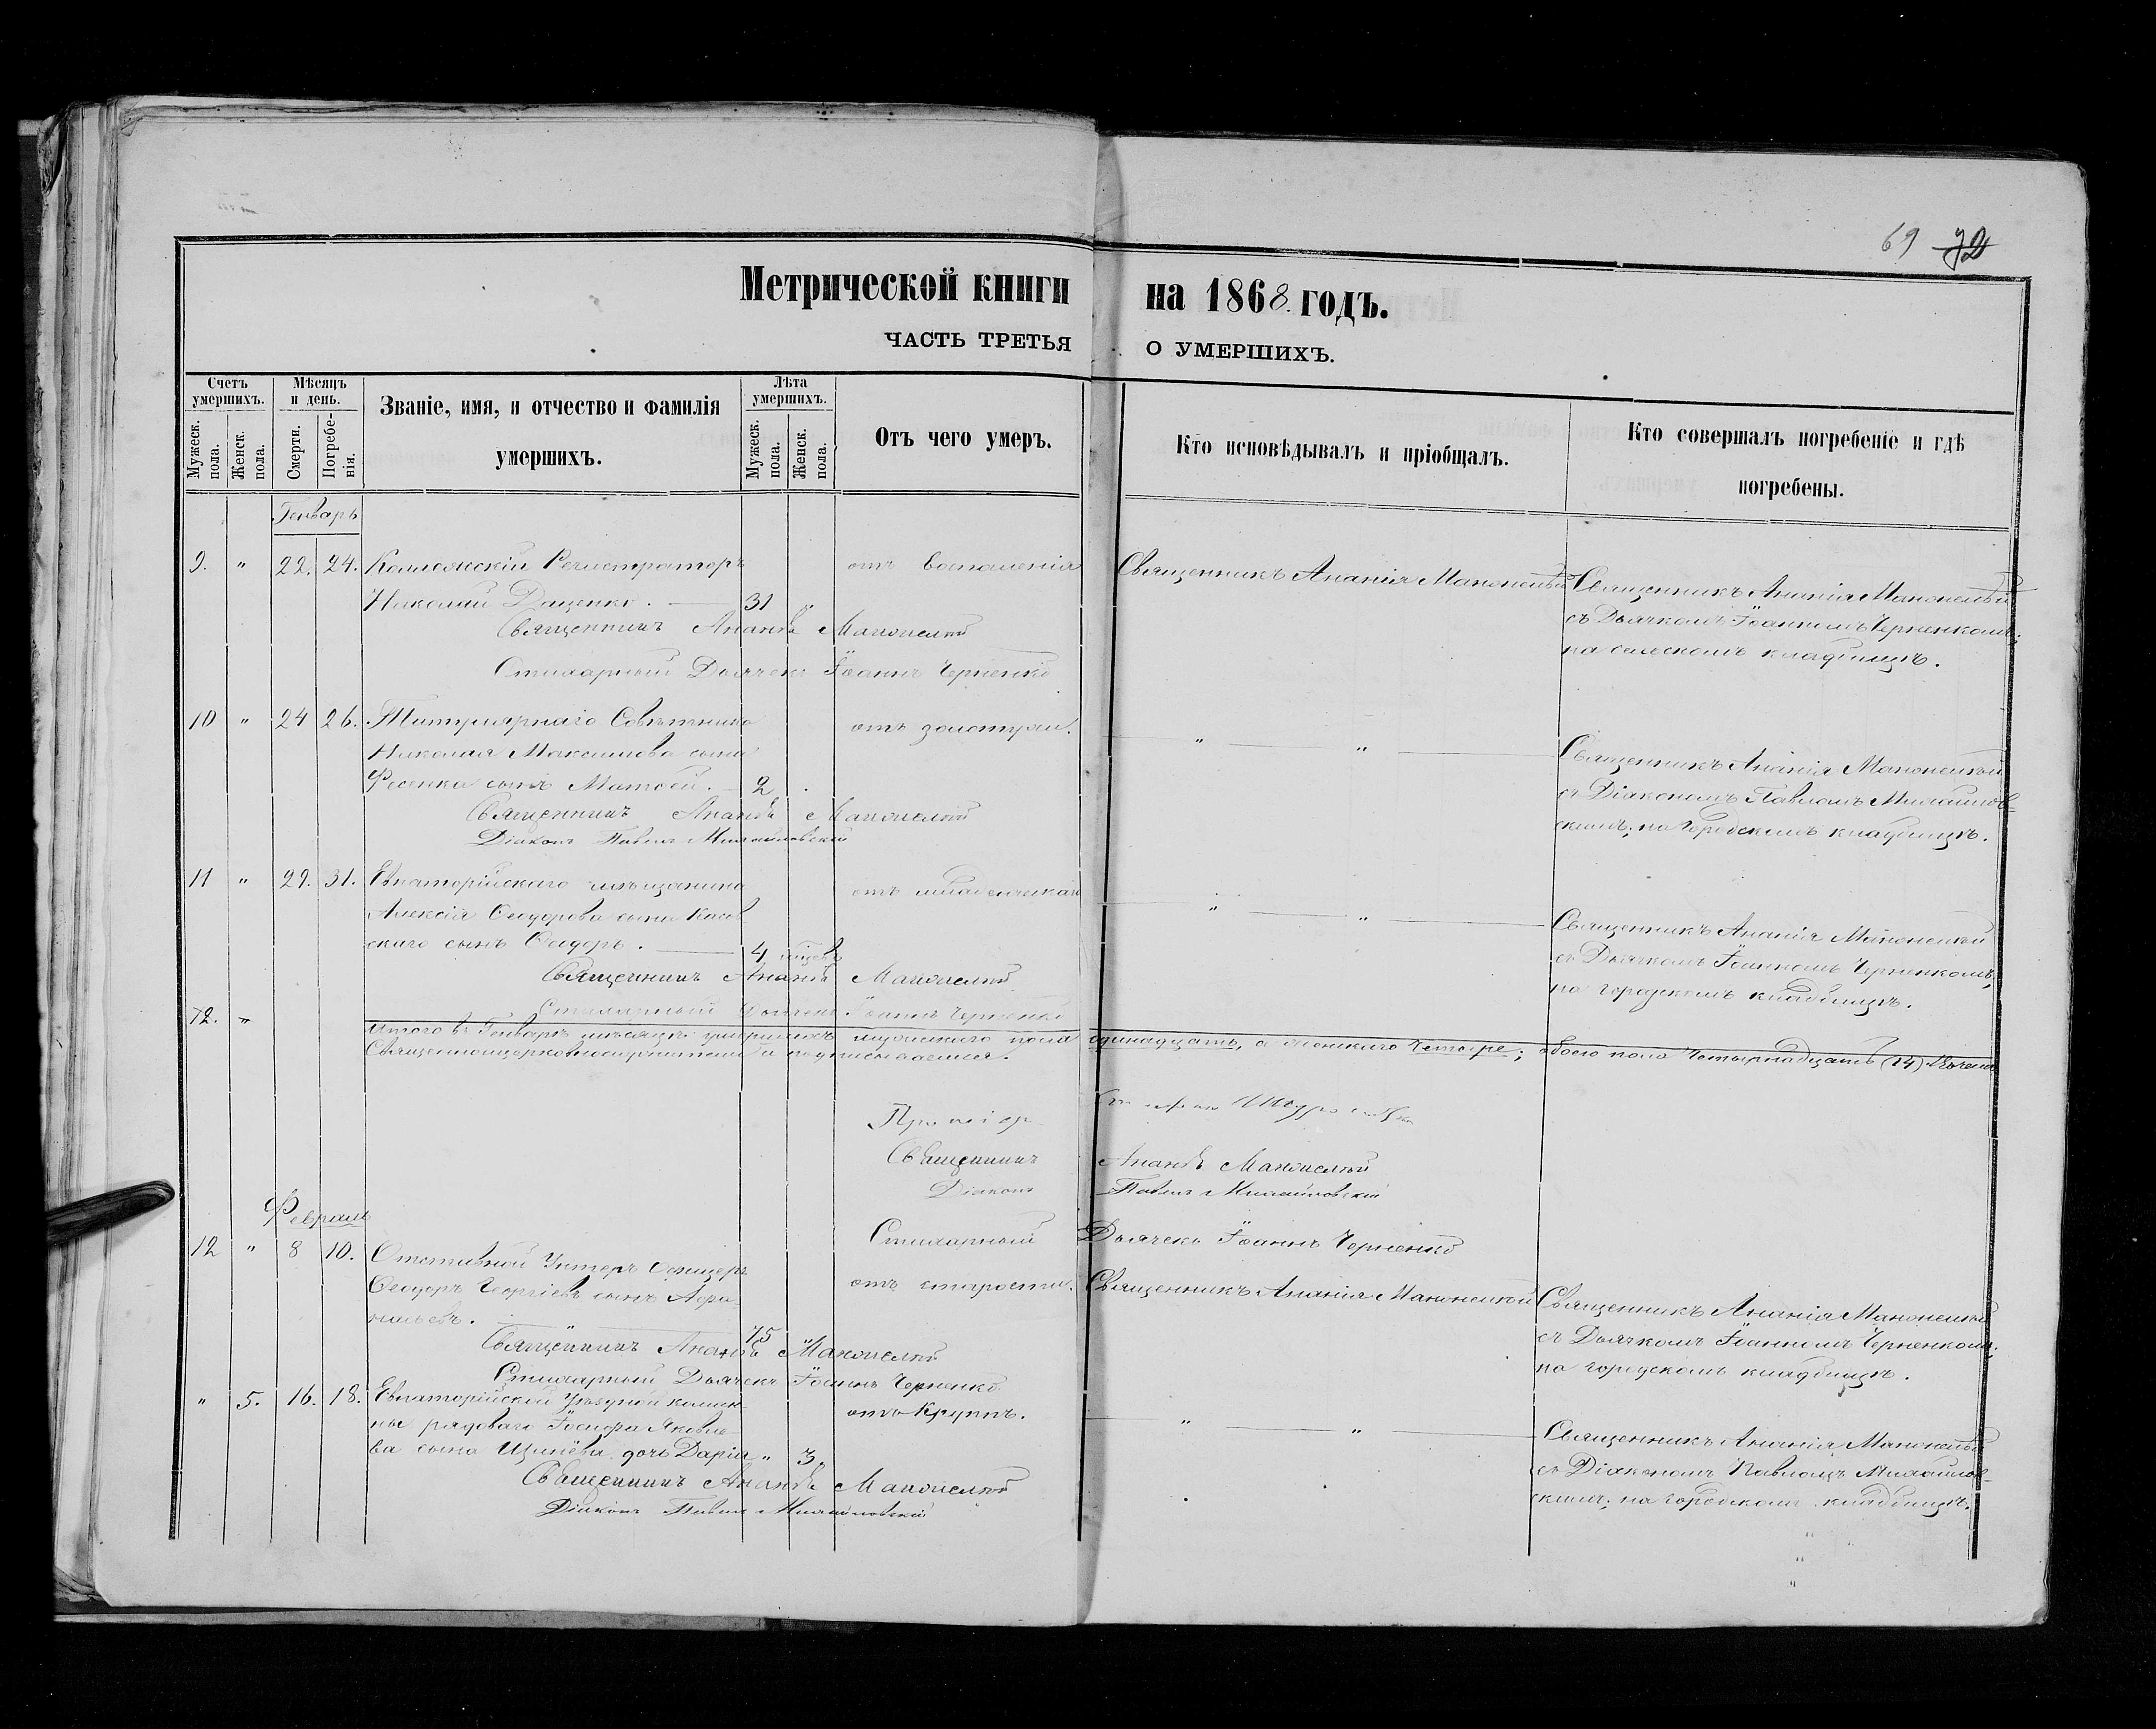 69 72
Метрической книги на 1868. годъ.
ЧАСТЬ ТРЕТЬЯ О УМЕРШИХЪ.
Счетъ умершихъ.
Мужеск. пола.
Женск. пола.
Мѣсяцъ и день.
Смерти.
Погребенія.
Званіе, имя, и отчество и фамилія
умершихъ.
Лѣта умершихъ.
Мужеск. пола.
Женск. пола.
Отъ чего умеръ.
Кто исповѣдывалъ и пріобщалъ.
Кто совершалъ погребеніе и гдѣ
погребены.
Генварь
9. " 22. 24. Коллежскій Регистраторъ
Николай Даценко. 31 "
отъ воспаленія
Священникъ Ананія
Священникъ Ананія
съ Дьячкомъ Іоанномъ Черненкомъ;
на сельскомъ кладбищѣ.
Священникъ
Стихарный Дьячекъ Іоаннъ Черненко
10 " 24 26. Титулярнаго Совѣтника
Николая Максимова сына
Фесенка сынъ Матвей. 2
отъ золотухи.
" "
Священникъ Ананія
съ Діакономъ Павломъ Михайлов-
скимъ; на городскомъ кладбищѣ.
Священникъ
Діаконъ Павелъ Михайловскій
11 " 29. 31. Евпаторійскаго мѣщанина
Алексія Ѳеодорова сына
скаго сынъ Ѳеодоръ. 4
отъ младенческой
" "
Священникъ Ананія
съ Дьячкомъ Іоанномъ Черненкомъ,
на городскомъ кладбищѣ.
Священникъ
Стихарный Дьячекъ Іоаннъ Черненко
12. "
Итого въ Генварѣ мѣсяцѣ умершихъ мужескаго пола одинадцать, а женскаго четыре; обоего пола Четырнадцать (14).
Священноцерковнослужители и подписываемся.
Священникъ
Діаконъ Павелъ Михайловскій
Стихарный Дьячекъ Іоаннъ Черненко
Февраль
12 " 8 10. Отставной Унтеръ Офицеръ
Ѳеодоръ Георгіевъ сынъ Афа-
насьевъ. 75 "
отъ старости.
Священникъ Ананія
Священникъ Ананія
съ Дьячкомъ Іоанномъ Черненкомъ,
на городскомъ кладбищѣ.
Священникъ
Стихарный Дьячекъ Іоаннъ Черненко
" 5. 16. 18. Евпаторійской Уѣздной коман-
ды рядоваго Іосифа Яковле-
ва сына дочь Дарія " 3.
отъ Круппъ.
" "
Священникъ Ананія
съ Діакономъ Павломъ Михайлов-
скимъ; на городскомъ кладбищѣ.
Священникъ
Діаконъ Павелъ Михайловскій